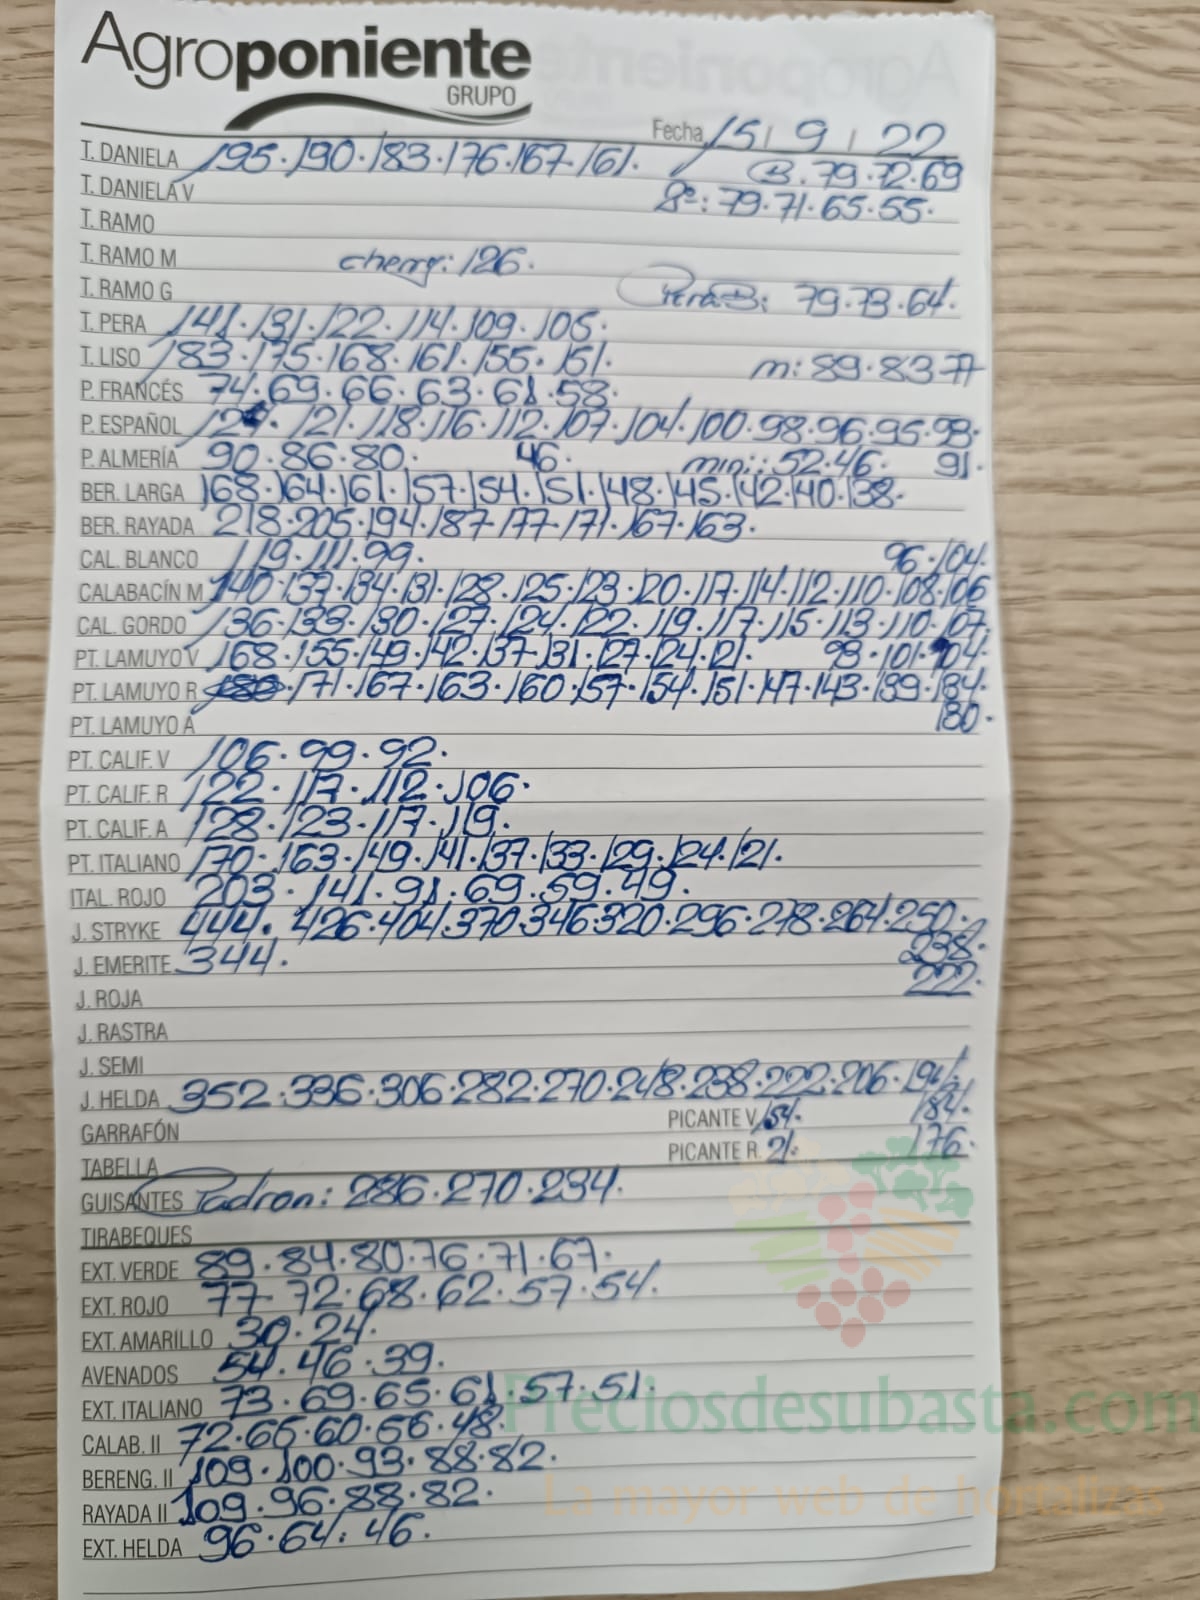 Agroponiente
GRUPO
Fecha 15 / 9 / 22
T. DANIELA 195·190·183·176·167·161· B. 79·72·69
T. DANIELA V 2ª: 79·71·65·55·
T. RAMO
T. RAMO M cherry: 126·
T. RAMO G Pera B: 79·73·64·
T. PERA 141·131·122·114·109·105·
T. LISO 183·175·168·161·155·151· m: 89·83·77
P. FRANCÉS 74·69·66·63·61·58·
P. ESPAÑOL 121·118·116·112·107·104·100·98·96·95·93·
P. ALMERÍA 90·86·80· 46· mini: 52·46· 91·
BER. LARGA 168·164·161·157·154·151·148·145·142·140·138·
BER. RAYADA 218·205·194·187·177·171·167·163·
CAL. BLANCO 119·111·99· 96·104·
CALABACÍN M 140·137·134·131·128·125·123·120·117·114·112·110·108·106
CAL. GORDO 136·133·130·127·124·122·119·117·115·113·110·107
PT. LAMUYO V 168·155·149·142·137·131·127·124·121· 93·101·104·
PT. LAMUYO R 171·167·163·160·157·154·151·147·143·139·134·
130·
PT. LAMUYO A
PT. CALIF. V 106·99·92·
PT. CALIF. R 122·117·112·106·
PT. CALIF. A 128·123·117·119·
PT. ITALIANO 170·163·149·141·137·133·129·124·121·
ITAL. ROJO 203·141·91·69·59·49·
J. STRYKE 444·426·404·370·346·320·296·278·264·250·
J. EMERITE 344· 238·
222·
J. ROJA
J. RASTRA
J. SEMI
J. HELDA 352·336·306·282·270·248·238·222·206·194·
GARRAFÓN PICANTE V. 154· 184·
TABELLA PICANTE R. 21· 176·
GUISANTES Padron: 286·270·234·
TIRABEQUES
EXT. VERDE 89·84·80·76·71·67·
EXT. ROJO 77·72·68·62·57·54·
EXT. AMARILLO 30·24·
AVENADOS 54·46·39·
EXT. ITALIANO 73·69·65·61·57·51·
Preciosdesubasta.com
CALAB. II 72·65·60·56·48·
BERENG. II 109·100·93·88·82·
RAYADA II 109·96·88·82·
La mayor web de hortalizas
EXT. HELDA 96·64·46·